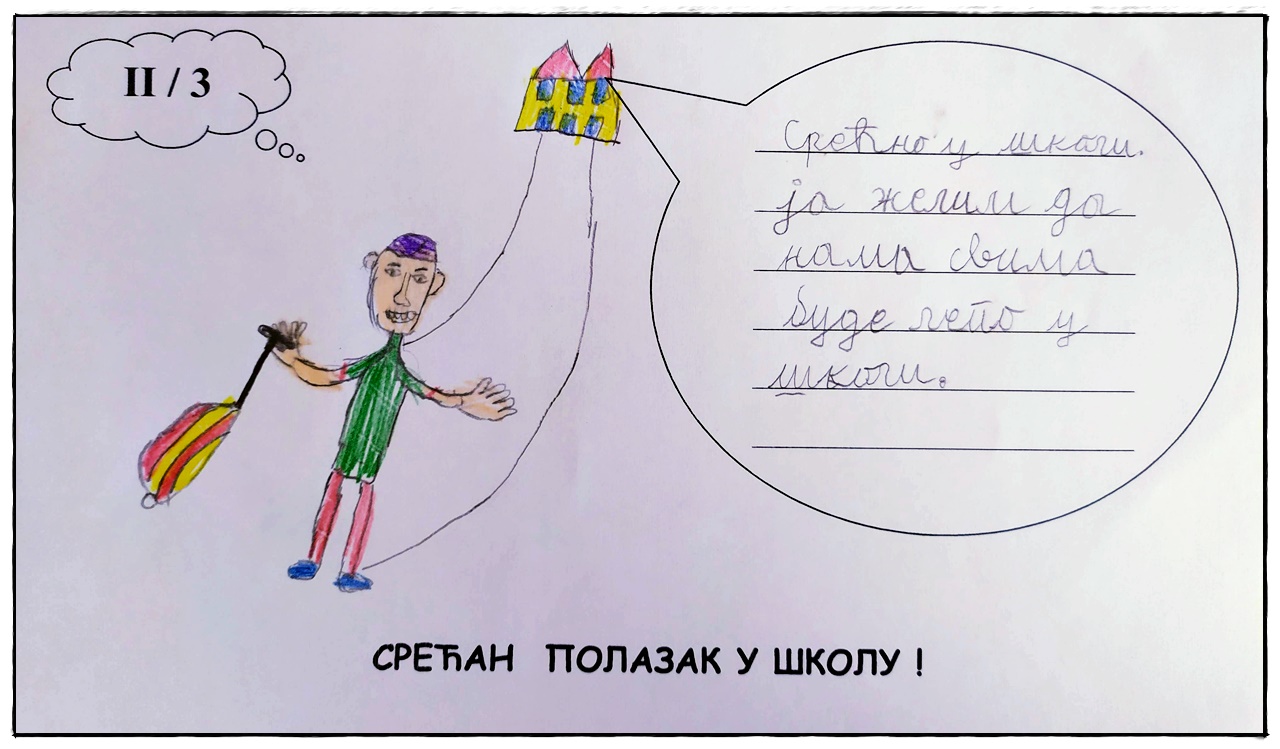 II / 3
Срећно у школи.
ја желим да
нама свима
буде лепо у
школи.
СРЕЋАН ПОЛАЗАК У ШКОЛУ !